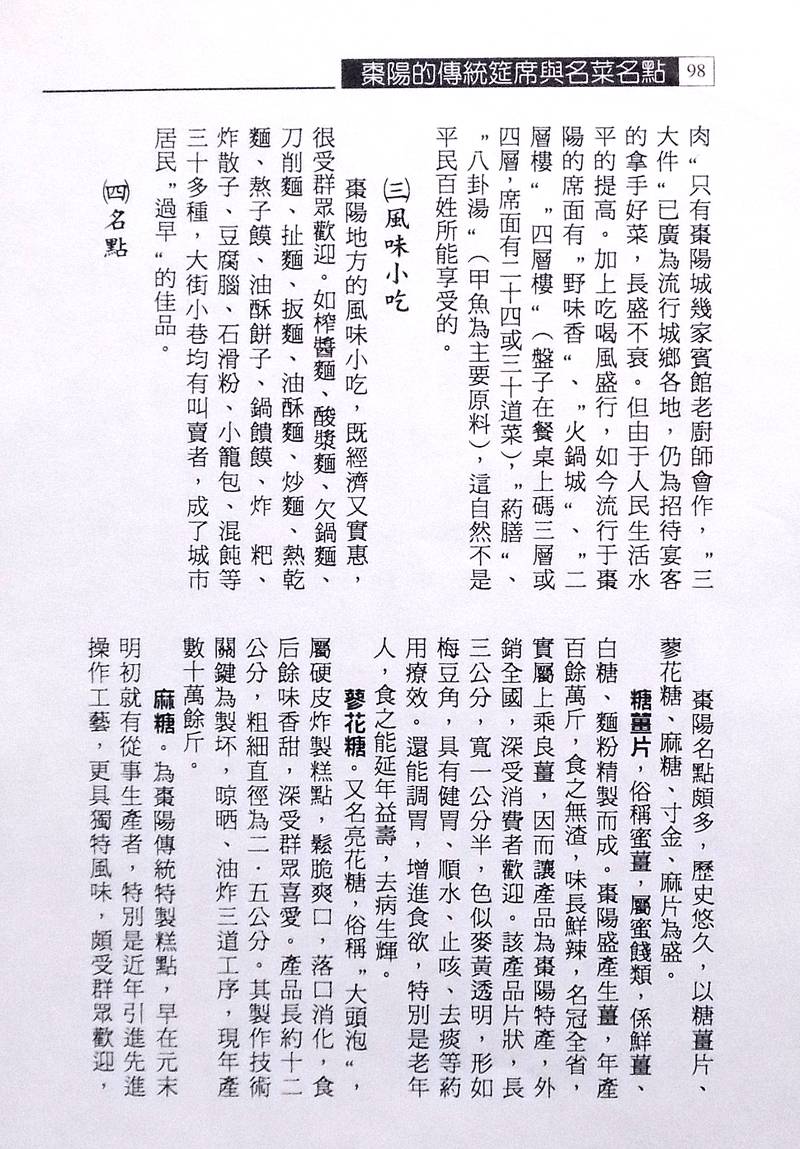 棗陽的傳統筵席與名菜名點 98
肉“只有棗陽城幾家賓館老廚師會作，”三
大件“已廣為流行城鄉各地，仍為招待宴客
的拿手好菜，長盛不衰。但由于人民生活水
平的提高。加上吃喝風盛行，如今流行于棗
陽的席面有”野味香“、”火鍋城“、”二
層樓“”四層樓“（盤子在餐桌上碼三層或
四層，席面有二十四或三十道菜），”葯膳“、
”八卦湯“（甲魚為主要原料），這自然不是
平民百姓所能享受的。
㈢風味小吃
棗陽地方的風味小吃，既經濟又實惠，
很受群眾歡迎。如榨醬麵、酸漿麵、欠鍋麵、
刀削麵、扯麵、扳麵、油酥麵、炒麵、熱乾
麵、熬子饃、油酥餅子、鍋饋饃、炸 粑、
炸散子、豆腐腦、石滑粉、小籠包、混飩等
三十多種，大街小巷均有叫賣者，成了城市
居民”過早“的佳品。
㈣名點
棗陽名點頗多，歷史悠久，以糖薑片、
蓼花糖、麻糖、寸金、麻片為盛。
糖薑片，俗稱蜜薑，屬蜜餞類，係鮮薑、
白糖、麵粉精製而成。棗陽盛產生薑，年產
百餘萬斤，食之無渣，味長鮮辣，名冠全省，
實屬上乘良薑，因而讓產品為棗陽特產，外
銷全國，深受消費者歡迎。該產品片狀，長
三公分，寬一公分半，色似麥黃透明，形如
梅豆角，具有健胃、順水、止咳、去痰等葯
用療效。還能調胃，增進食欲，特別是老年
人，食之能延年益壽，去病生輝。
蓼花糖。又名亮花糖，俗稱”大頭泡“，
屬硬皮炸製糕點，鬆脆爽口，落口消化，食
后餘味香甜，深受群眾喜愛。產品長約十二
公分，粗細直徑為二．五公分。其製作技術
關鍵為製坏，晾晒、油炸三道工序，現年產
數十萬餘斤。
麻糖。為棗陽傳統特製糕點，早在元末
明初就有從事生產者，特別是近年引進先進
操作工藝，更具獨特風味，頗受群眾歡迎，